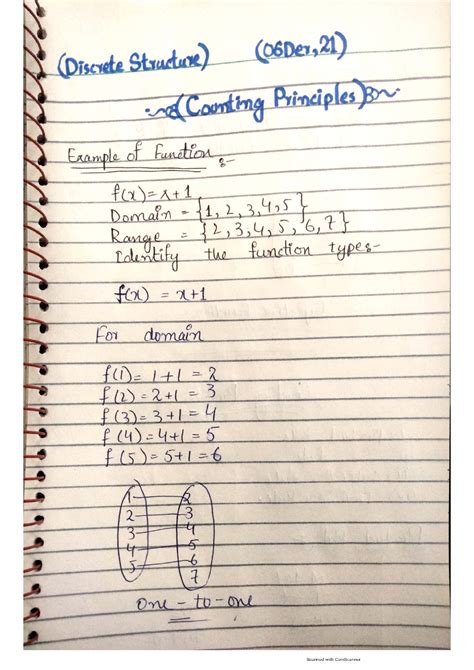 (Discrete Structure) (06Der,21)
(Counting Principles)
Example of Function :-
f(x)=x+1
Domain = {1, 2, 3, 4, 5}
Range = {2, 3, 4, 5, 6, 7}
Identify the function types-
f(x) = x+1
For domain
f(1) = 1+1 = 2
f(2) = 2+1 = 3
f(3) = 3+1 = 4
f(4) = 4+1 = 5
f(5) = 5+1 = 6
1 2
2 3
3 4
4 5
5 6
7
one-to-one
Scanned with CamScanner